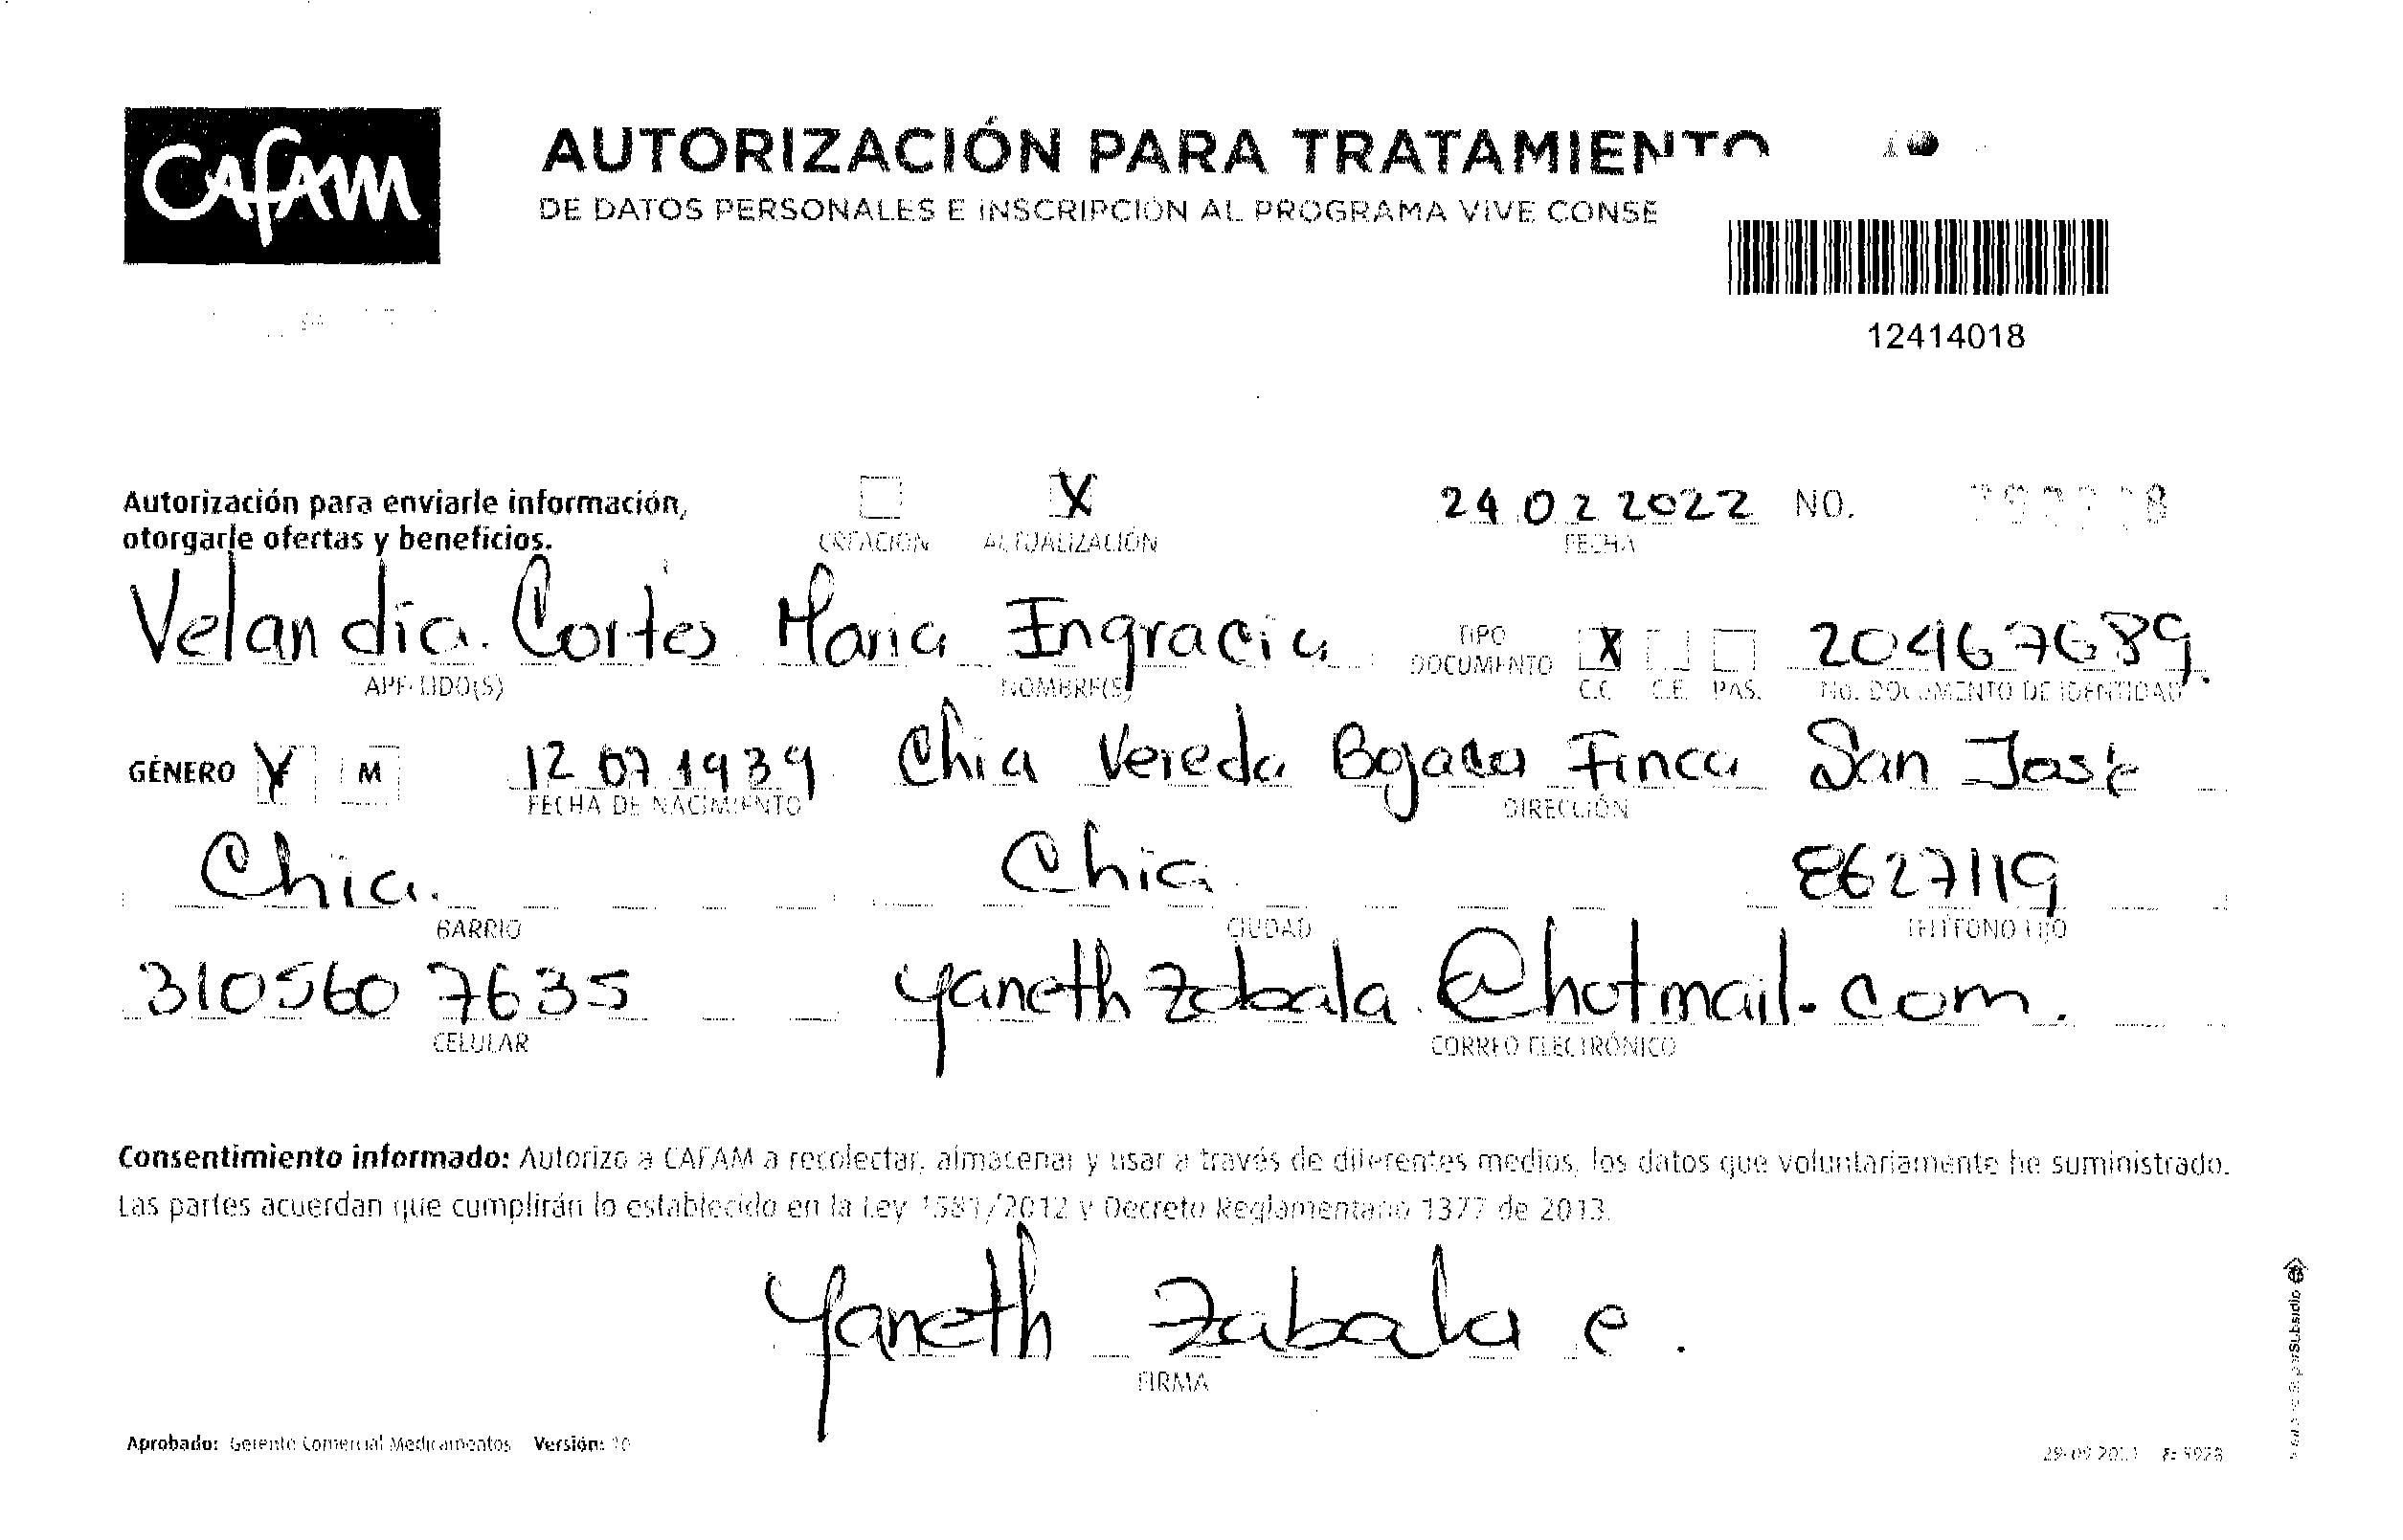 CAFAM
AUTORIZACIÓN PARA TRATAMIENTO
DE DATOS PERSONALES E INSCRIPCIÓN AL PROGRAMA VIVE CONSE
12414018
Autorización para enviarle información,
otorgarle ofertas y beneficios.
CREACIÓN X ACTUALIZACIÓN
24 02 2022 NO.
FECHA
Velandia Cortes Maria Ingracia TIPO DOCUMENTO X 20467689.
APELLIDO(S) NOMBRE(S) C.C. C.E. PAS. No. DOCUMENTO DE IDENTIDAD
GÉNERO X M 12 07 1939 Chia Vereda Bojaca Finca San Jose
FECHA DE NACIMIENTO DIRECCIÓN
Chia. Chia 8627119
BARRIO CIUDAD TELÉFONO FIJO
310560 7635 yanethzabala@hotmail.com.
CELULAR CORREO ELECTRÓNICO
Consentimiento informado: Autorizo a CAFAM a recolectar, almacenar y usar a través de diferentes medios, los datos que voluntariamente he suministrado.
Las partes acuerdan que cumplirán lo establecido en la Ley 1581/2012 y Decreto Reglamentario 1377 de 2013.
Yaneth Zabala c.
FIRMA
Aprobado: Gerente Comercial Medicamentos Versión: 10